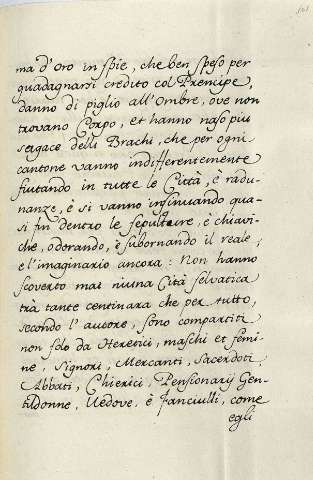 ma d'oro in spie, che ben speso per
guadagnarsi credito col Prencipe,
danno di piglio all'Ombre, ove non
trovano Corpo, et hanno naso piu
segace delli Brachi, che per ogni
cantone vanno indifferentemente
fiutando in tutte le Città, è radu-
nanze, è si vanno insinuando qua-
si fin dentro le sepulture, è chiavi-
che, odorando, è subornando il reale,
e l'imaginario ancora: Non hanno
scoverto mai niuna Cità selvatica
trà tante centinara che per tutto,
secondo l'autore, sono compartiti
non solo da Heretici, maschi et femi-
ne, Signori, Mercanti, Sacerdoti,
Abbati, Chierici, Pensionarij Gen-
tildonne, Vedove, è Fanciulli, come
egli